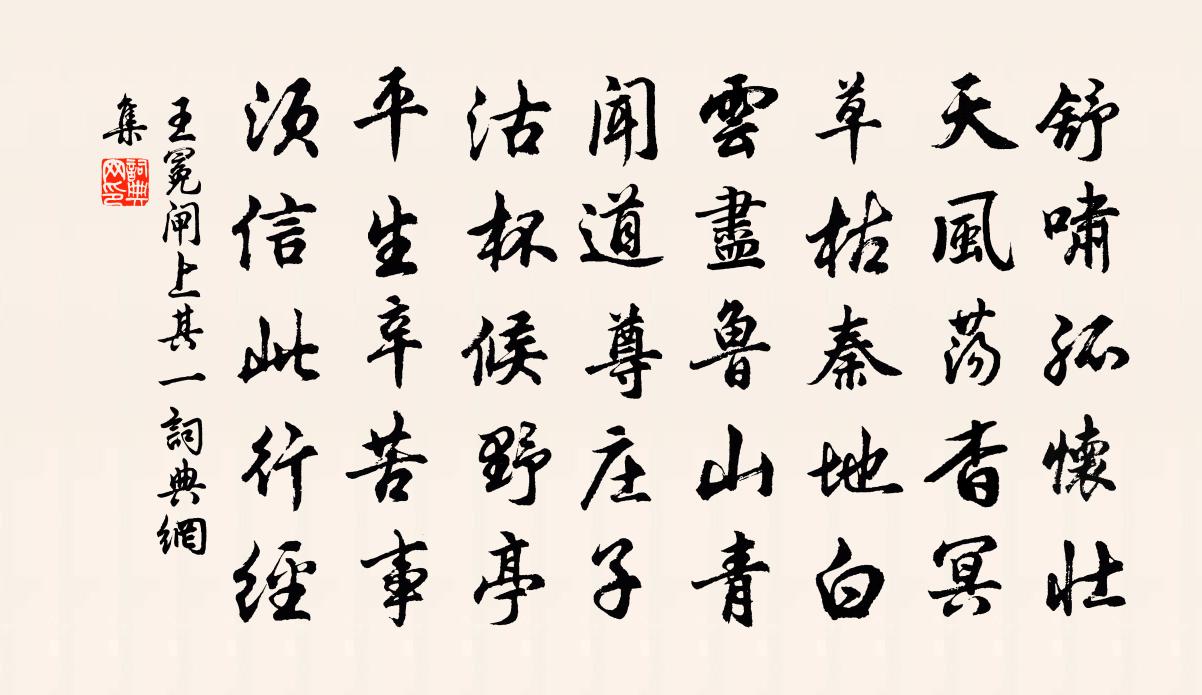 舒嘯孤懷壯
天風蕩杳冥
草枯秦地白
雲盡魯山青
聞道尊庄子
沽杯候野亭
平生辛苦事
須信此行經
王冕闸上其一詞典網
集
詞典網印